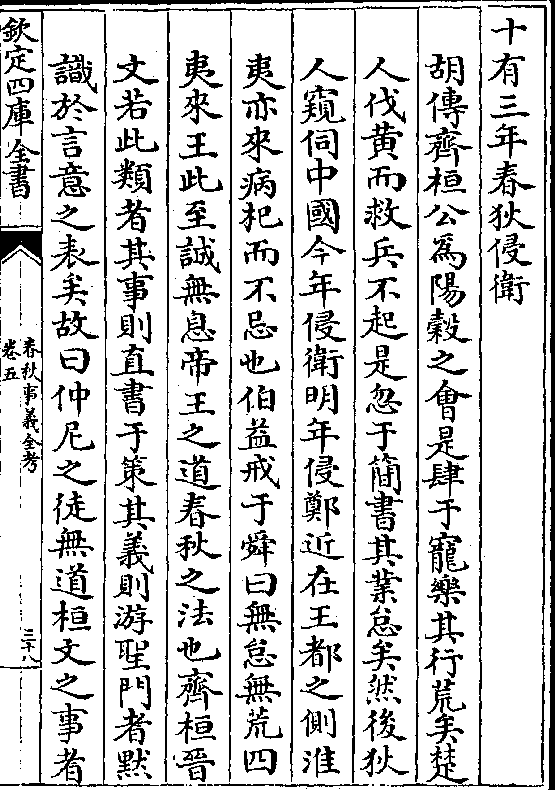 十有三年春狄侵衛
胡傳齊桓公為陽榖之會是肆于寵樂其行荒矣楚
人伐黄而救兵不起是忽于簡書其業怠矣然後狄
人窺伺中國今年侵衛明年侵鄭近在王都之側淮
夷亦來病杞而不忌也伯益戒于舜曰無怠無荒四
夷來王此至誠無息帝王之道春秋之法也齊桓晉
文若此類者其事則直書于策其義則游聖門者默
識於言意之表矣故曰仲尼之徒無道桓文之事者
欽定四庫全書
春秋事義全考
卷五
三十八